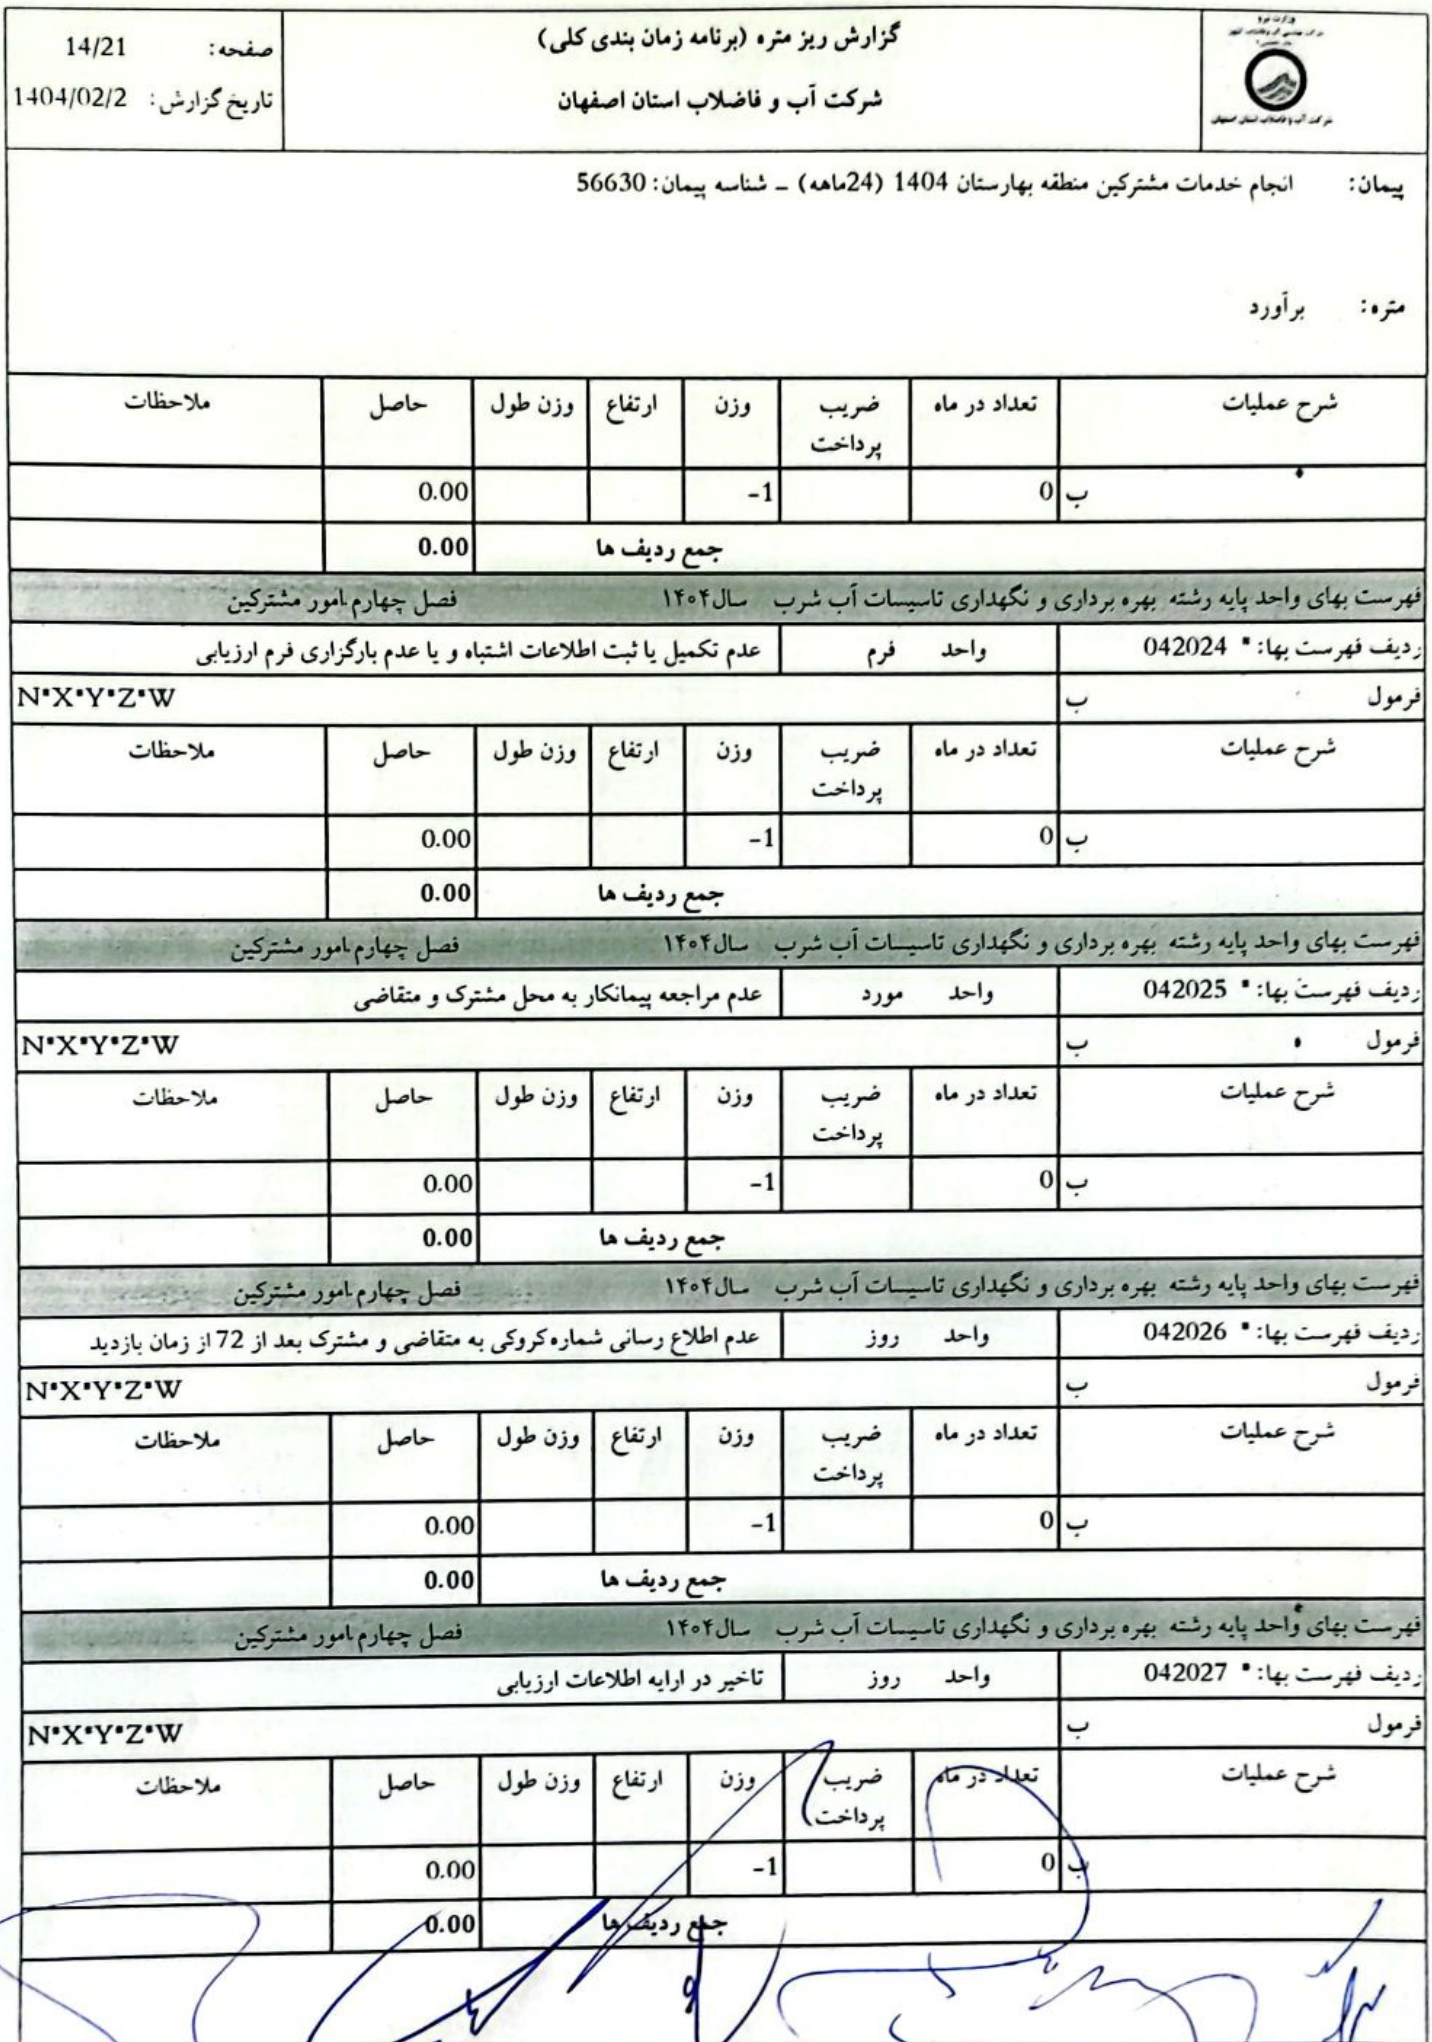 گزارش ریز متره (برنامه زمان بندی کلی)
شرکت آب و فاضلاب استان اصفهان
صفحه: 14/21
تاریخ گزارش: 1404/02/2
وزارت نیرو
شرکت آب و فاضلاب استان اصفهان
پیمان: انجام خدمات مشترکین منطقه بهارستان 1404 (24ماهه) - شناسه پیمان: 56630
متره: برآورد
شرح عملیات تعداد در ماه ضریب پرداخت وزن ارتفاع وزن طول حاصل ملاحظات
ب 0 -1 0.00
جمع ردیف ها 0.00
فهرست بهای واحد پایه رشته بهره برداری و نگهداری تاسیسات آب شرب سال۱۴۰۴ فصل چهارم.امور مشترکین
ردیف فهرست بها: * 042024 واحد فرم عدم تکمیل یا ثبت اطلاعات اشتباه و یا عدم بارگزاری فرم ارزیابی
فرمول ب N*X*Y*Z*W
شرح عملیات تعداد در ماه ضریب پرداخت وزن ارتفاع وزن طول حاصل ملاحظات
ب 0 -1 0.00
جمع ردیف ها 0.00
فهرست بهای واحد پایه رشته بهره برداری و نگهداری تاسیسات آب شرب سال۱۴۰۴ فصل چهارم.امور مشترکین
ردیف فهرست بها: * 042025 واحد مورد عدم مراجعه پیمانکار به محل مشترک و متقاضی
فرمول ب N*X*Y*Z*W
شرح عملیات تعداد در ماه ضریب پرداخت وزن ارتفاع وزن طول حاصل ملاحظات
ب 0 -1 0.00
جمع ردیف ها 0.00
فهرست بهای واحد پایه رشته بهره برداری و نگهداری تاسیسات آب شرب سال۱۴۰۴ فصل چهارم.امور مشترکین
ردیف فهرست بها: * 042026 واحد روز عدم اطلاع رسانی شماره کروکی به متقاضی و مشترک بعد از 72 از زمان بازدید
فرمول ب N*X*Y*Z*W
شرح عملیات تعداد در ماه ضریب پرداخت وزن ارتفاع وزن طول حاصل ملاحظات
ب 0 -1 0.00
جمع ردیف ها 0.00
فهرست بهای واحد پایه رشته بهره برداری و نگهداری تاسیسات آب شرب سال۱۴۰۴ فصل چهارم.امور مشترکین
ردیف فهرست بها: * 042027 واحد روز تاخیر در ارایه اطلاعات ارزیابی
فرمول ب N*X*Y*Z*W
شرح عملیات تعداد در ماه ضریب پرداخت وزن ارتفاع وزن طول حاصل ملاحظات
ب 0 -1 0.00
جمع ردیف ها 0.00